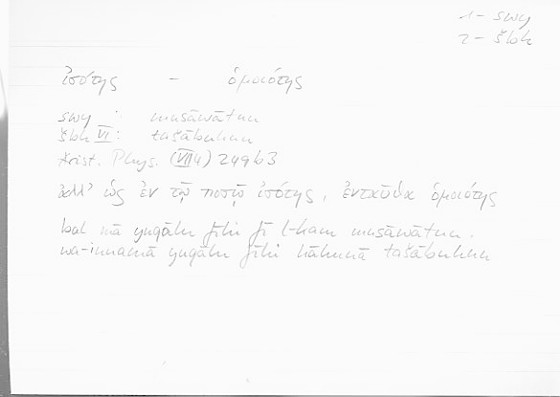 1 - swy
2 - šbh
ἰσότης - ὁμοιότης
swy : musāwātun
šbh VI : tašābuhun
Arist. Phys. (VII 4) 249b3
ἀλλ' ὡς ἐν τῷ ποσῷ ἰσότης, ἐνταῦθα ὁμοιότης
mā yuqālu fīhi fī l-kam musāwātun.
wa-innamā yuqālu fīhi hāhunā tašābuhun